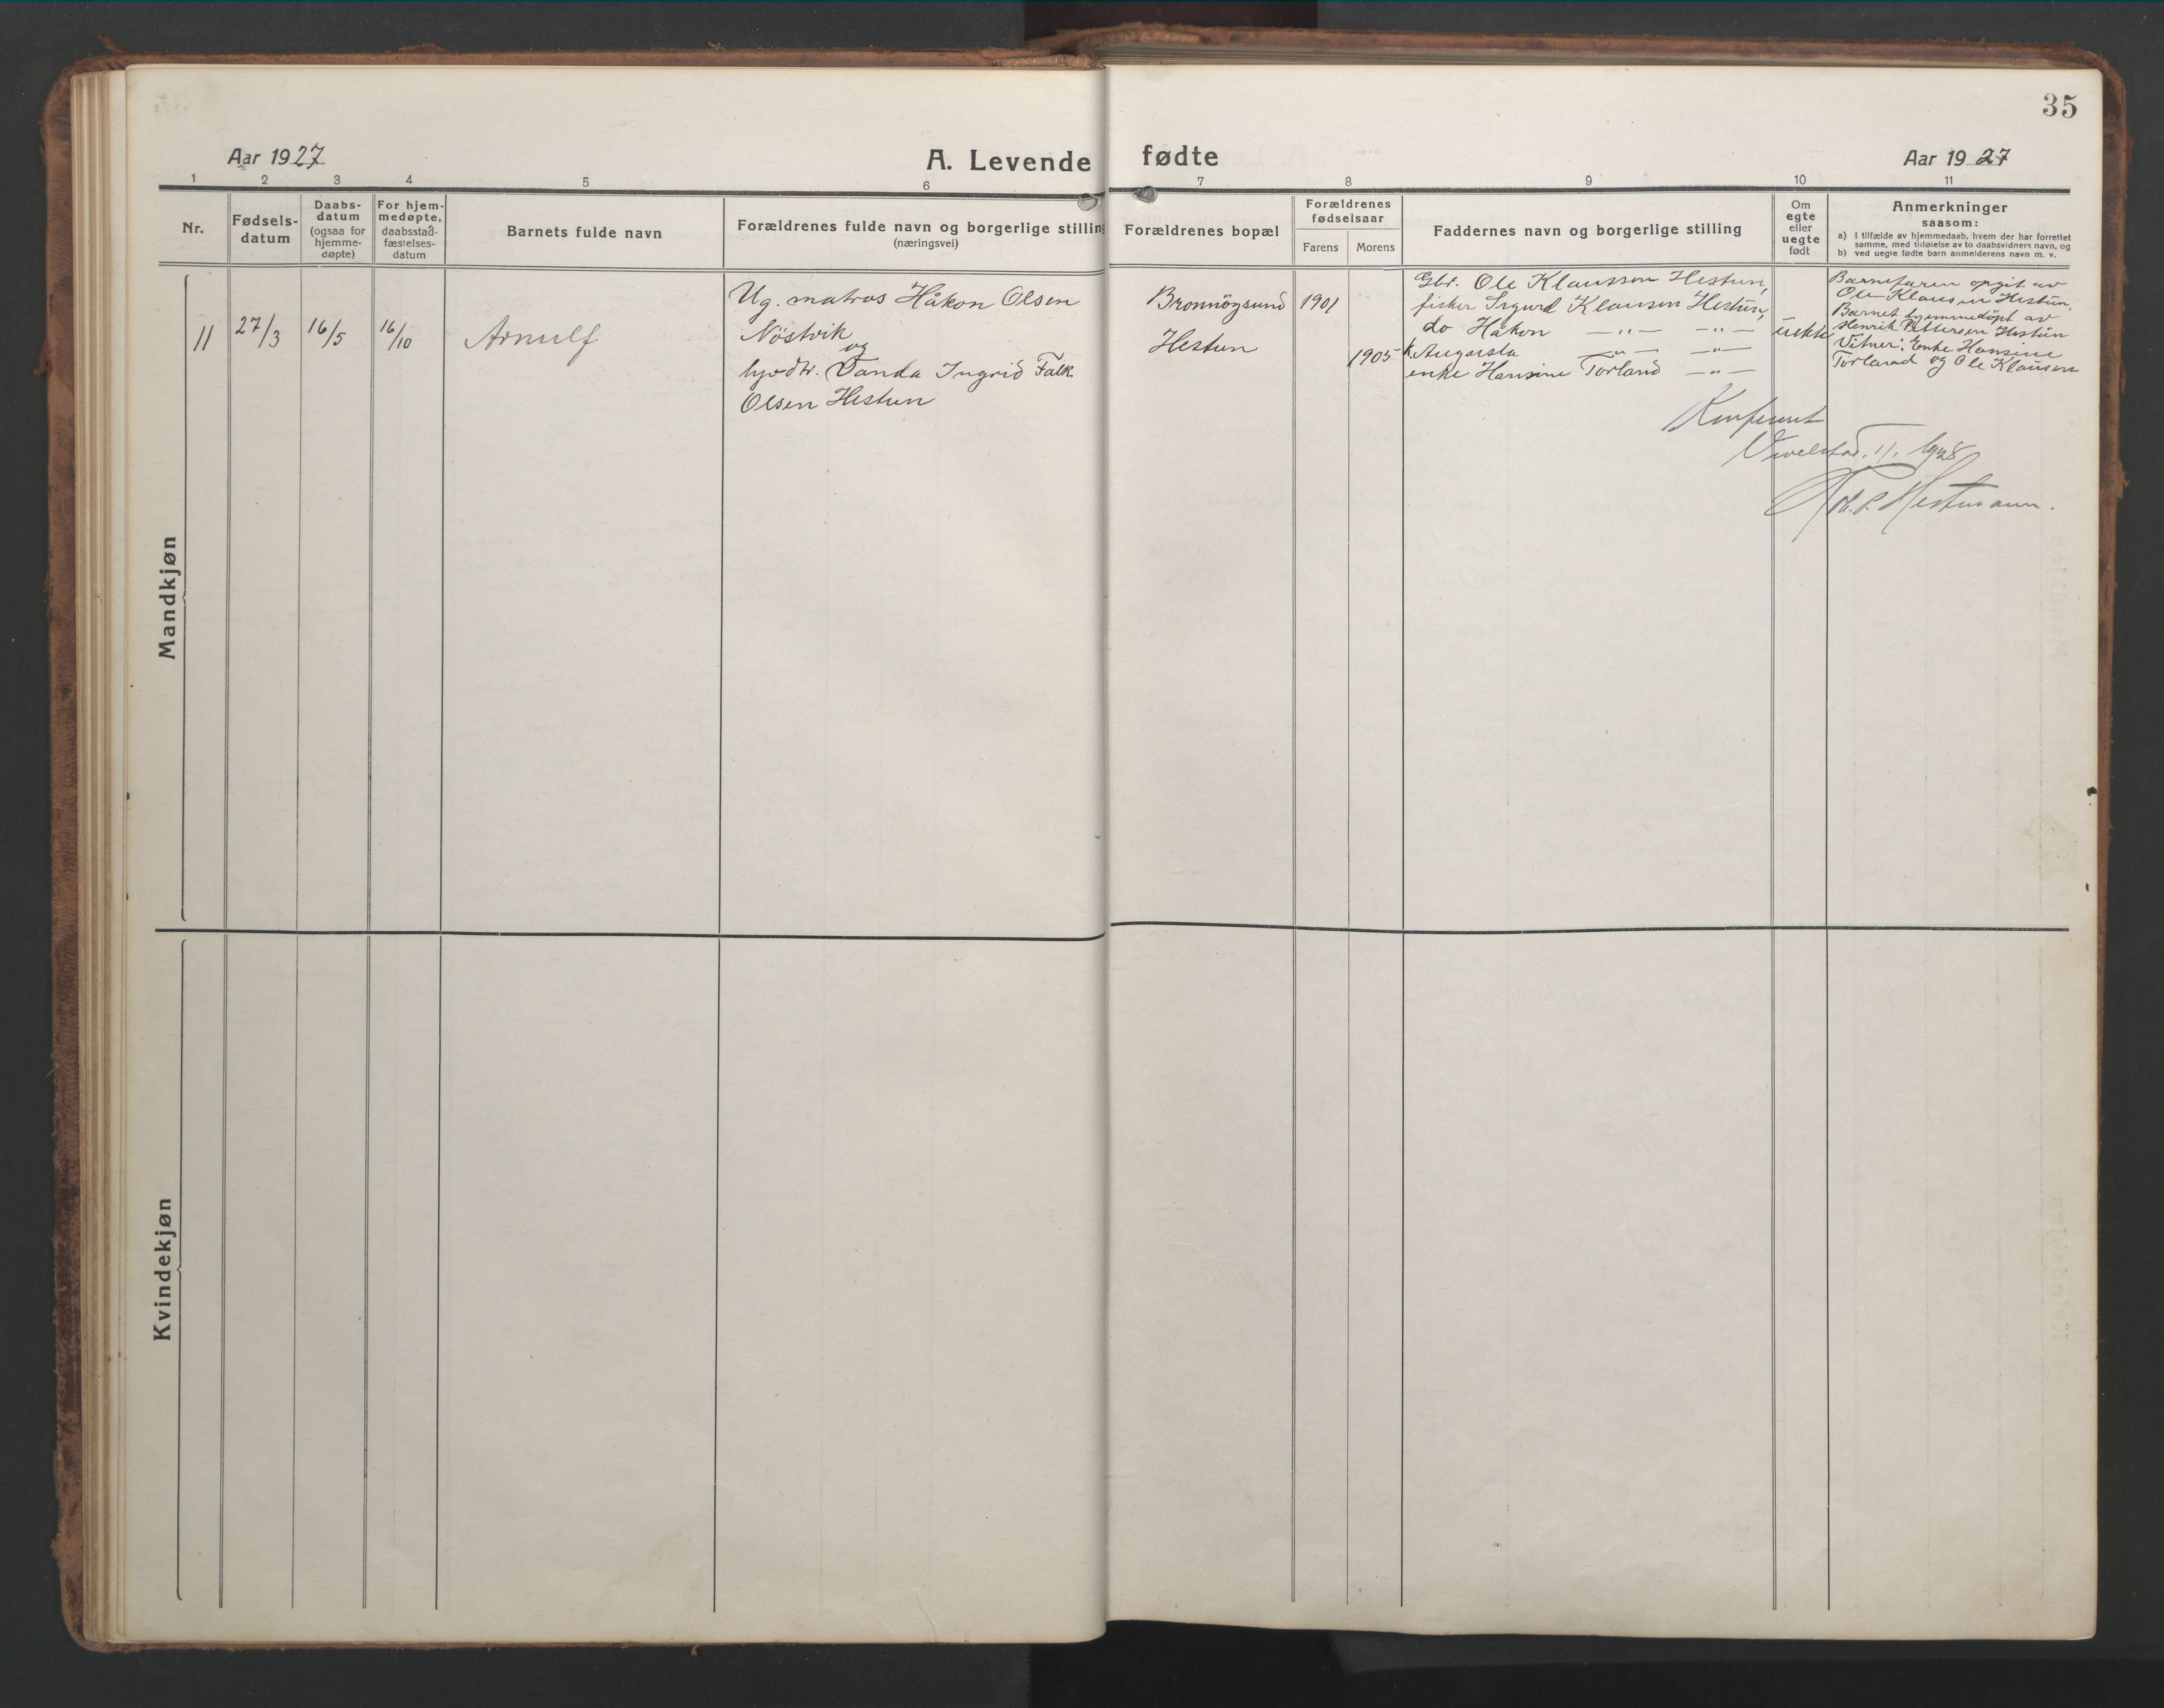 35
Aar 1927
A. Levende fødte
Aar 1927
1 2 3 4 5 6 7 8 9 10 11
Nr.
Fødsels-
datum
Daabs-
datum
(ogsaa for
hjemme-
døpte)
For hjem-
medøpte,
daabsstad-
fæstelses-
datum
Barnets fulde navn
Forældrenes fulde navn og borgerlige stilling
(næringsvei)
Forældrenes bopæl
Forældrenes
fødselsaar
Farens Morens
Faddernes navn og borgerlige stilling
Om
egte
eller
uegte
født
Anmerkninger
saasom:
a) i tilfælde av hjemmedaab, hvem der har forrettet
samme, med tilføielse av to daabsvidners navn, og
b) ved uegte fødte barn anmelderens navn m. v.
Mandkjøn
11
27/3
16/5
16/10
Arnulf
Ug. matros Håkon Olsen
Nöstvik
og
Vanda Ingrid Falk
Olsen Hestun
Bronnögsund
Hestun
1901
1905
Gbr. Ole Klausson Hestun,
fisker Sigurd Klausen Hestun,
do Håkon —"— —"—
k Augusta —"— —"—
enke Hansine Torland —"—
uekte
Barnefaren opgit av
Ole Klausen Hestun.
Barnet hjemmedöpt av
Henrik Pettersen Hestun
Vitner: Enke Hansine
Torland og Ole Klausen
Konferert
1/1 1928
Kvindekjøn